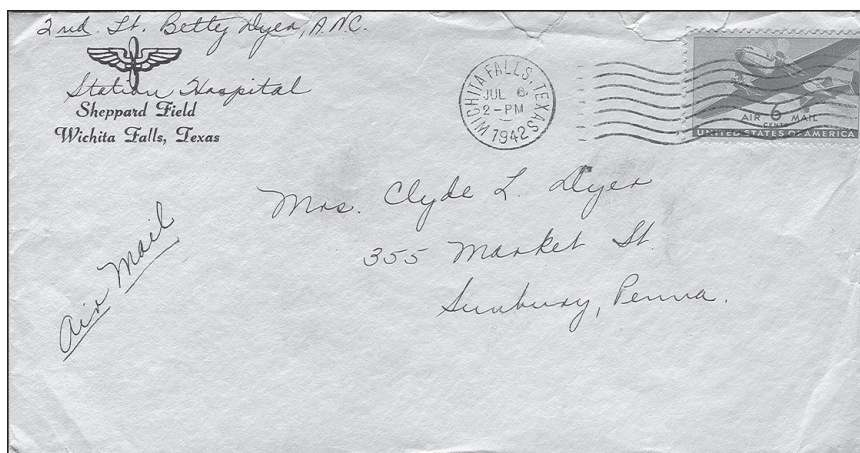 2nd. Lt. Betty Dyer, A.N.C.
Station Hospital
Sheppard Field
Wichita Falls, Texas
WICHITA FALLS, TEXAS
JUL 6
2-PM
1942
AIR 6 MAIL
CENTS
UNITED STATES OF AMERICA
Mrs. Clyde L. Dyer
355 Market St.
Sunbury, Penna.
Air Mail